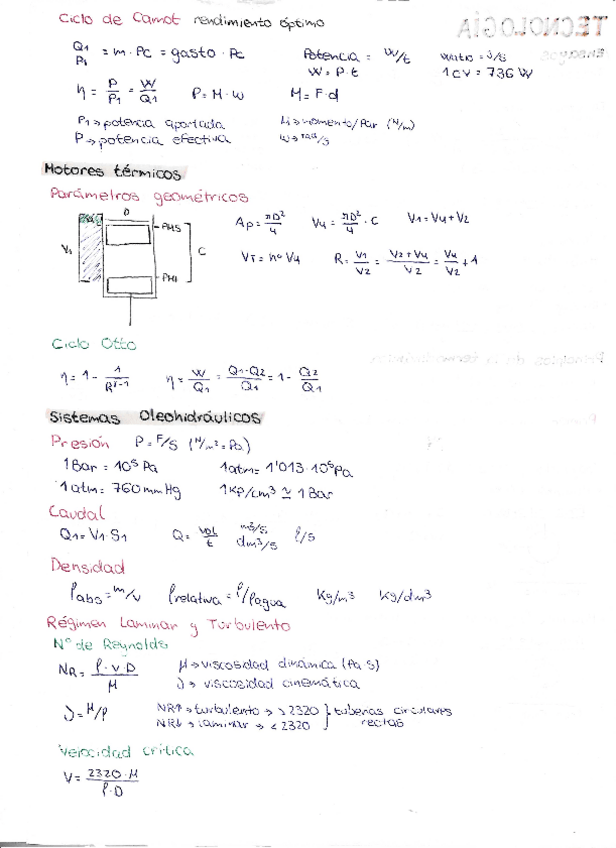 Ciclo de Carnot rendimiento óptimo
TECNOLOGÍA
Q1/P1 = m · Pc = gasto · Pc
Potencia = W/t
Watio = J/s
W = P · t
1CV = 736 W
η = P/P1 = W/Q1
P = M · w
M = F · d
P1 → potencia aportada
M → momento/Par (N/m)
P → potencia efectiva
w → rad/s
Motores térmicos
Parámetros geométricos
D
PMS
V1
C
PMI
Ap = πD²/4
Vu = πD²/4 · C
V1 = Vu + V2
VT = nº Vu
R = V1/V2 = V2 + Vu/V2 = Vu/V2 + 1
Ciclo Otto
η = 1 - 1/R^γ-1
η = W/Q1 = Q1-Q2/Q1 = 1 - Q2/Q1
Sistemas Oleohidráulicos
Presión P = F/S (N/m² = Pa)
1Bar = 10⁵ Pa
1atm = 1'013 · 10⁵ Pa
1atm = 760 mm Hg
1Kp/cm³ ≃ 1Bar
Caudal
Q1 = V1 · S1
Q = Vol/t
m³/s
dm³/s
l/s
Densidad
ρabs = m/v
ρrelativa = ρ/ρagua
Kg/m³
Kg/dm³
Régimen Laminar y Turbulento
Nº de Reynolds
NR = ρ · v · D/μ
μ → viscosidad dinámica (Pa s)
ν → viscosidad cinemática
ν = μ/ρ
NR↑ → turbulento → > 2320 } tuberias circulares
NR↓ → laminar → < 2320 } rectas
Velocidad crítica
V = 2320 · μ/ρ · D